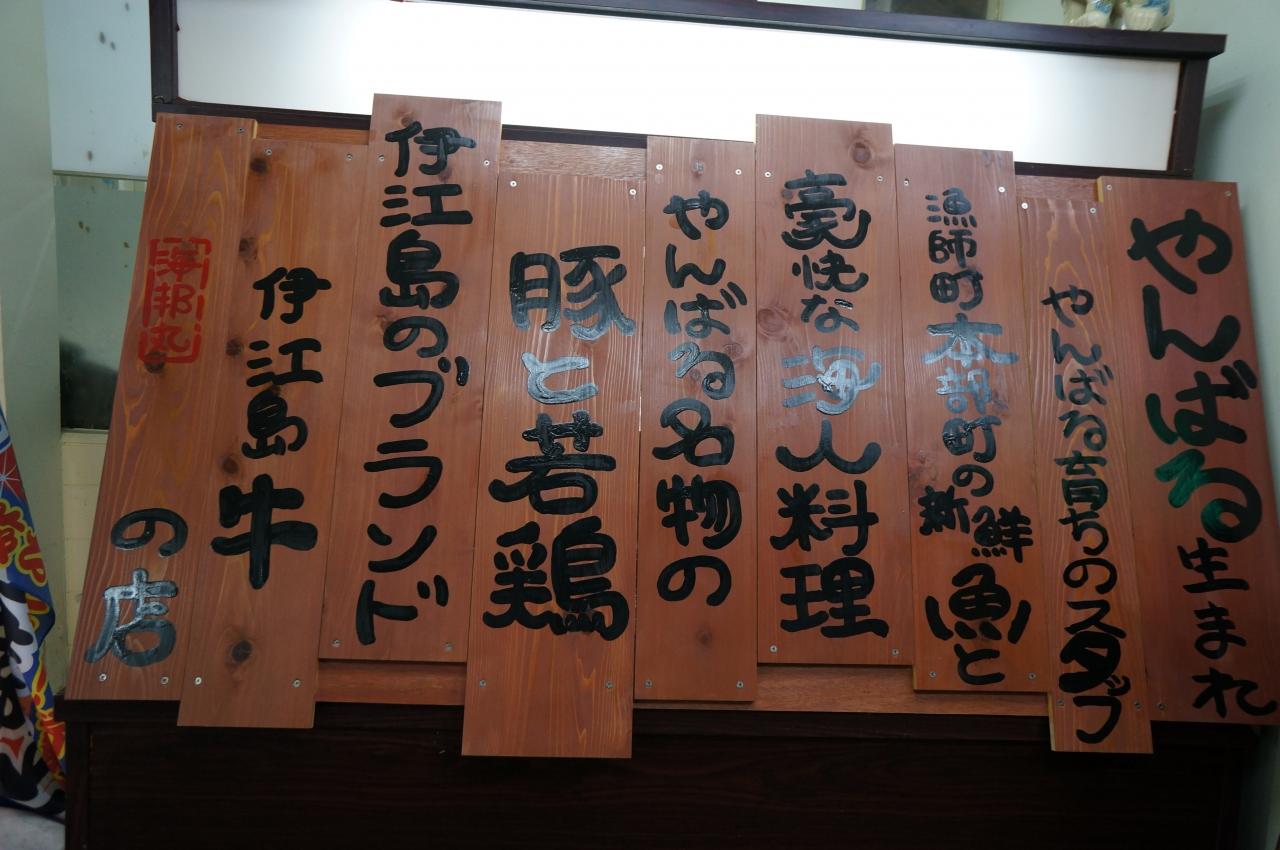 やんばる生まれ
やんばる育ちのスタッフ
漁師町本部町の新鮮魚と
豪快な海人料理
やんばる名物の
豚と若鶏
伊江島のブランド
伊江島牛
海邦丸の店